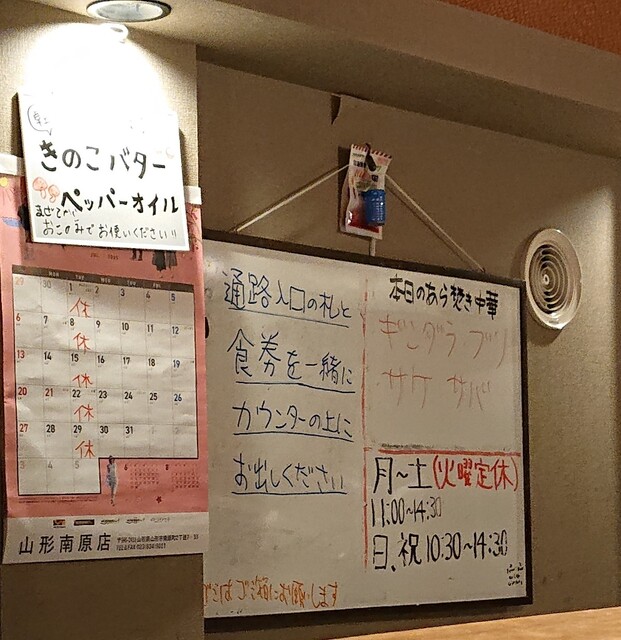 きのこバター
ペッパーオイル
まぜてから
おこのみでお使いください!!
MON TUE WED THU FRI SAT
29 30 1 2 3 4 5
休
6 7 8 9 10 11 12
休
13 14 15 16 17 18 19
休
20 21 22 23 24 25 26
休
27 28 29 30 31
休
3 4 5
山形南原店
通路入口の札と
食券を一緒に
カウンターの上に
お出しください
本日のあら焚き中華
ギンダラ ブリ
サケ サバ
月~土(火曜定休)
11:00~14:30
日、祝 10:30~14:30
お願いします